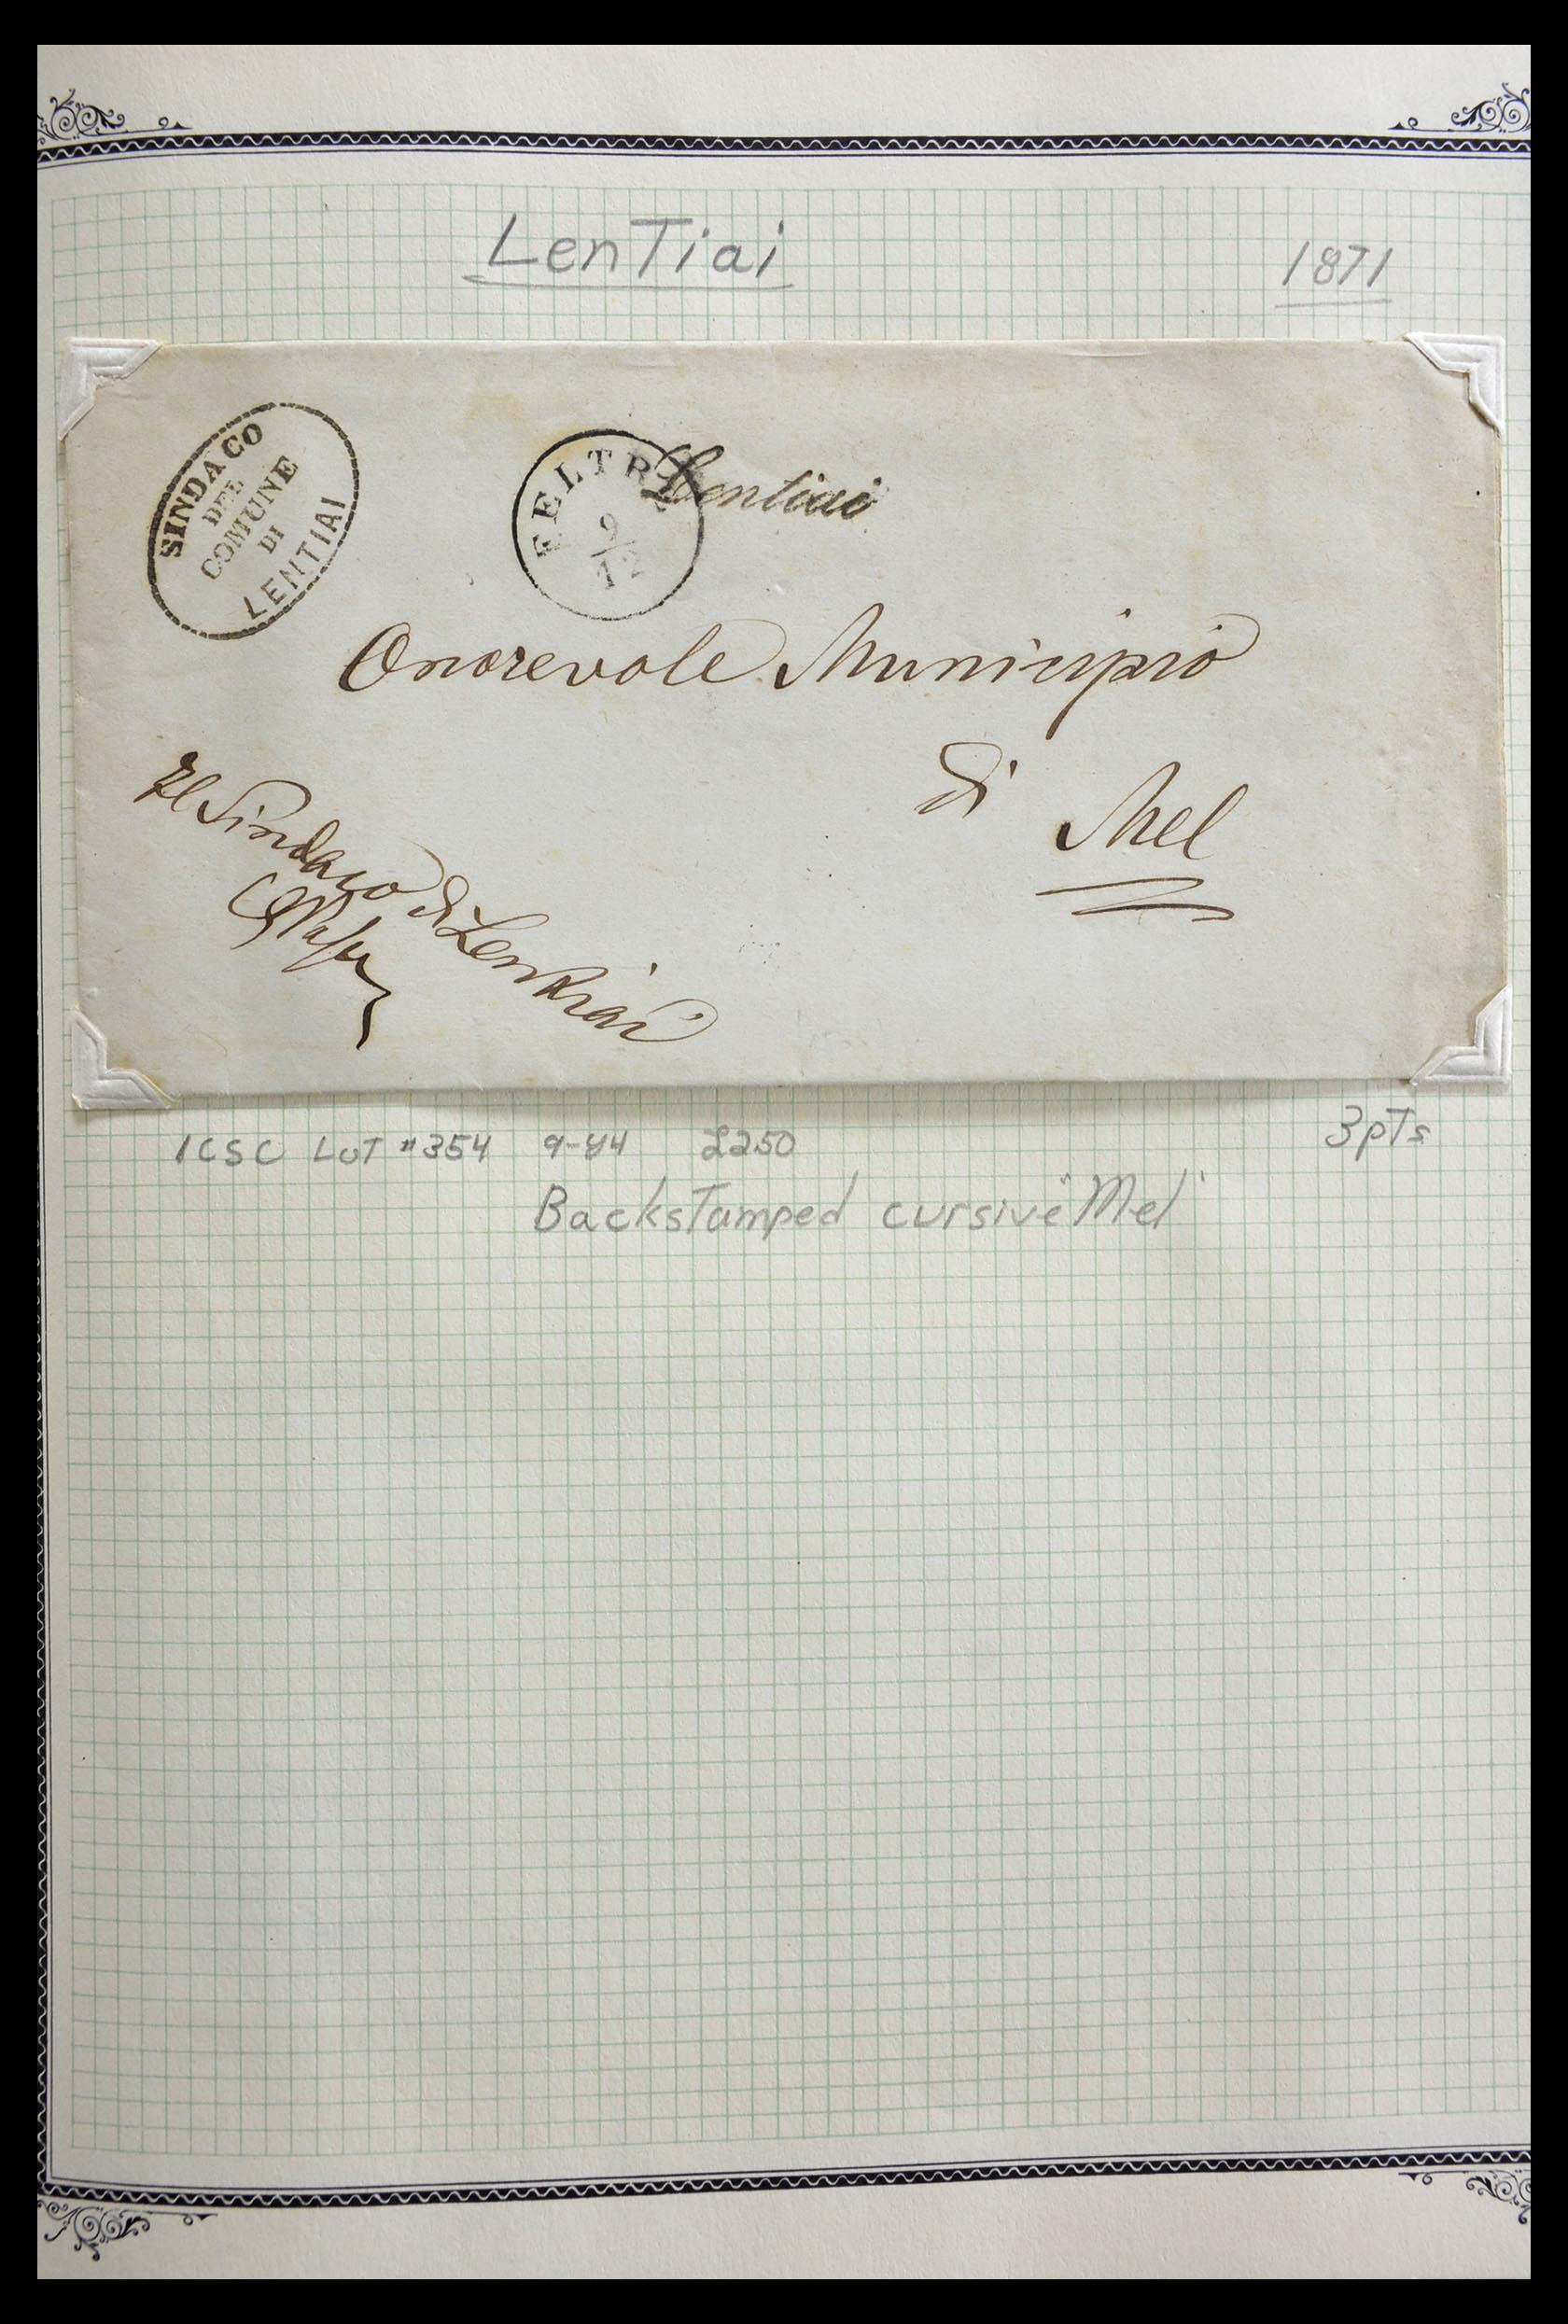 LenTiai
1871
SINDACO
DEL
COMUNE
DI
LENTIAI
FELTRE
9
12
Lentiai
Onorevole Municipio
di Mel
Il Sindaco di Lentiai
ICSC LoT #354 9-84 £250
3pTs
BacksTamped cursive "Mel"